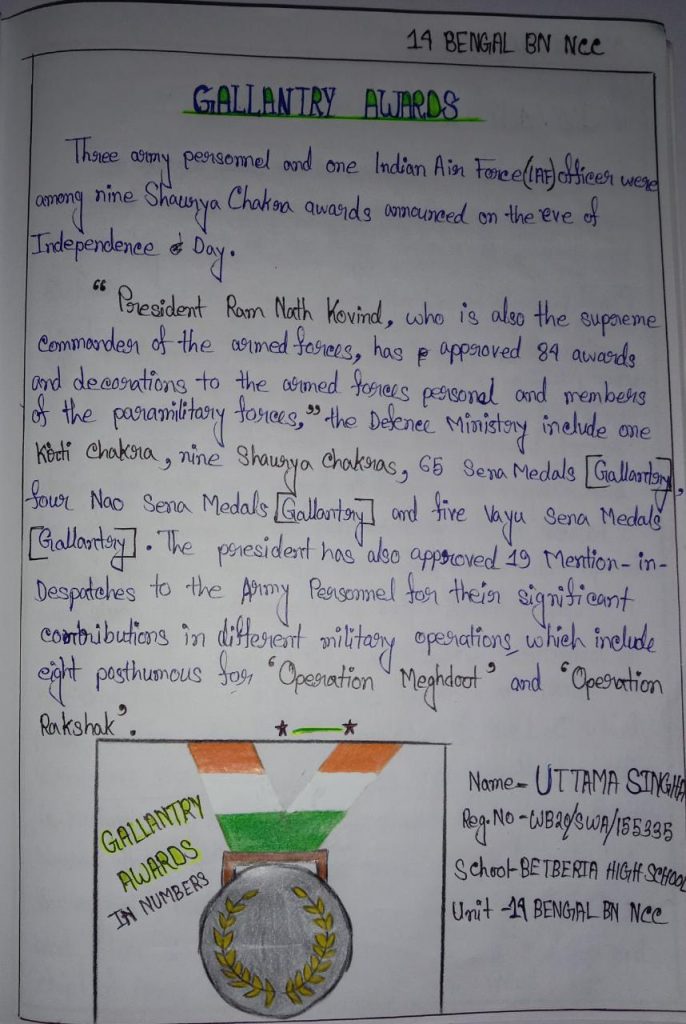 14 BENGAL BN NCC
GALLANTRY AWARDS
Three army personnel and one Indian Air Force(IAF) officer were
among nine Shaurya Chakra awards announced on the eve of
Independence Day.
"President Ram Nath Kovind, who is also the supreme
commander of the armed forces, has approved 84 awards
and decorations to the armed forces personal and members
of the paramilitary forces," the Defence Ministry include one
Kirti Chakra, nine Shaurya Chakras, 65 Sena Medals [Gallantry],
four Nao Sena Medals [Gallantry] and five Vayu Sena Medals
[Gallantry]. The president has also approved 19 Mention-in-
Despatches to the Army Personnel for their significant
contributions in different military operations, which include
eight posthumous for 'Operation Meghdoot' and 'Operation
Rakshak'.
GALLANTRY
AWARDS
IN NUMBERS
Name- UTTAMA SINGHA
Reg.No -WB20/SWA/155335
School-BETBERIA HIGH SCHOOL
Unit -14 BENGAL BN NCC